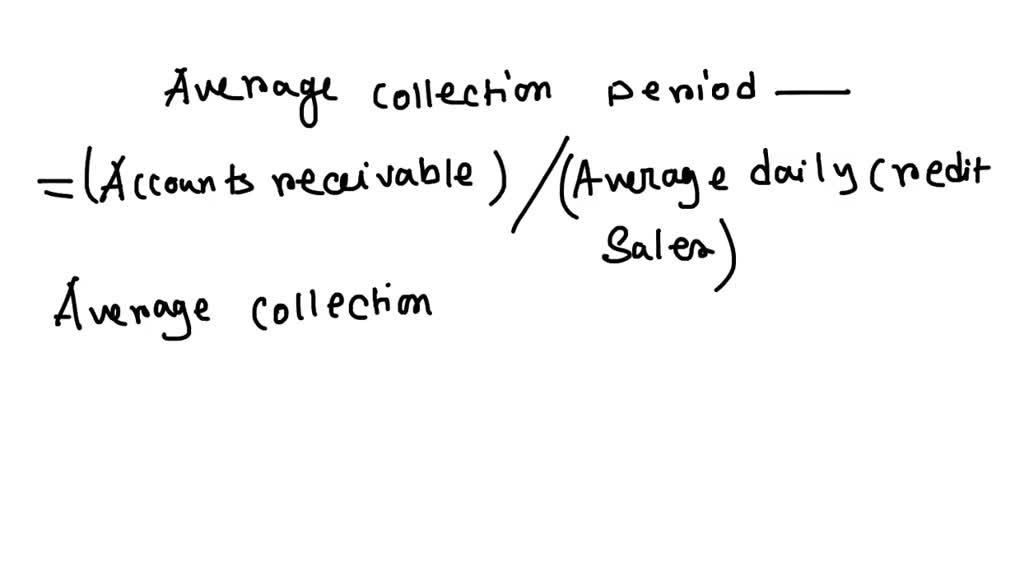 Average collection period —
= (Accounts receivable) / (Average daily credit
Sales)
Average collection